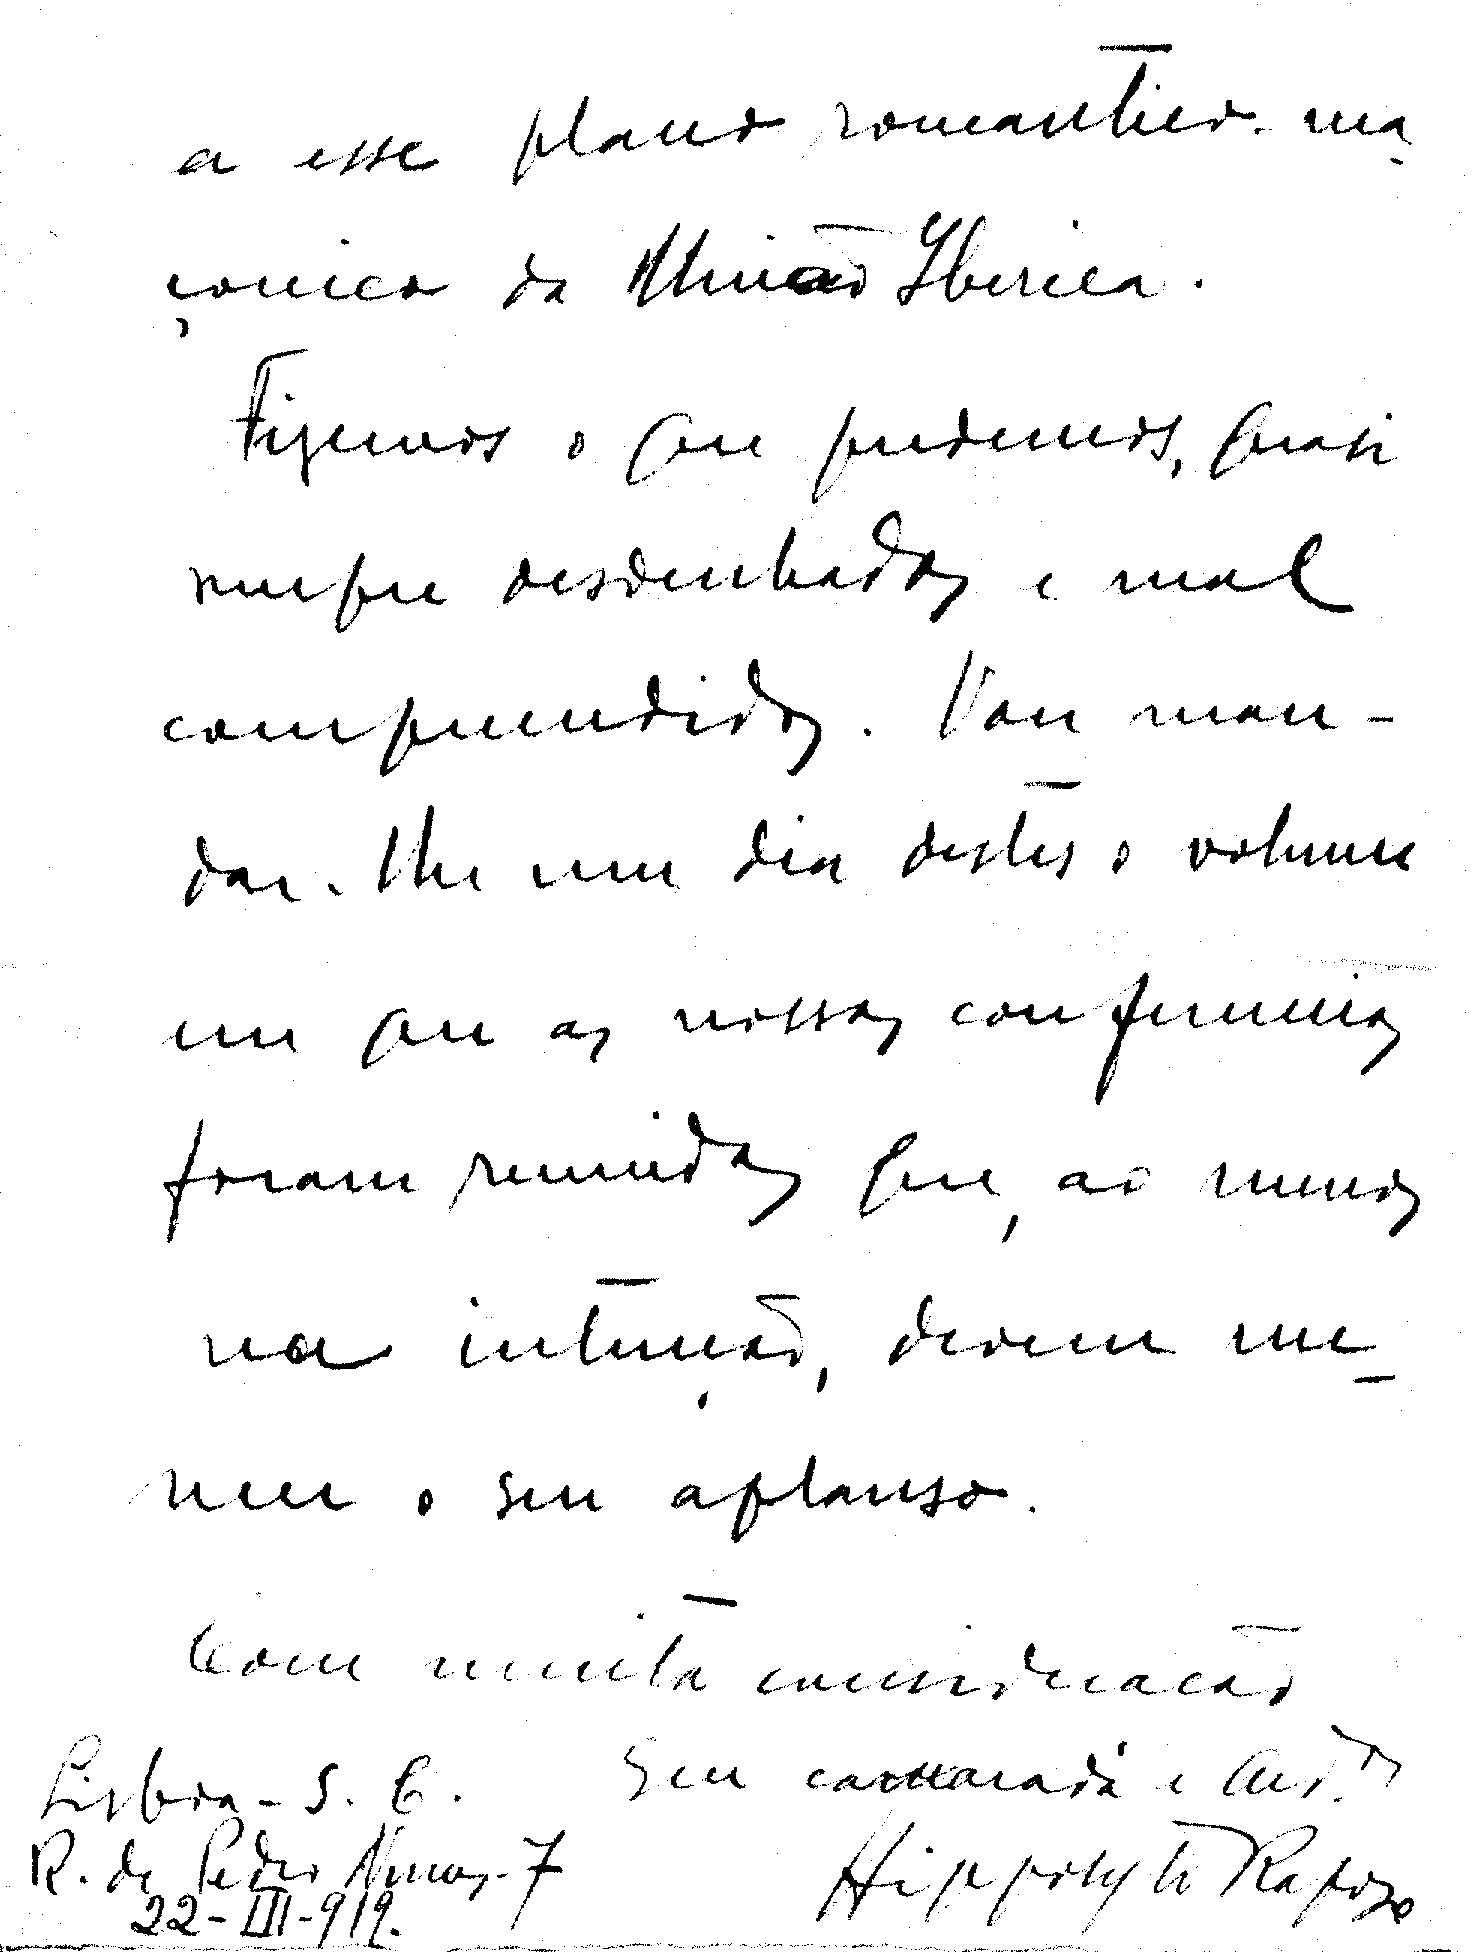 a esse plano romantico-ma-
çonico da União Iberica.
Fizemos o que pudemos, quasi
sempre desdenhados e mal
comprendidos. Vou man-
dar-lhe um dia destes o volume
em que as nossas conferencias
foram reunidas que, ao menos
na intenção, devem me-
recer o seu aplauso.
Com muita consideração
Seu camarada e Adm.dor
Lisboa - S. C.
R. de Pedro Nunes - 7
22-III-919.
Hippolyto Raposo